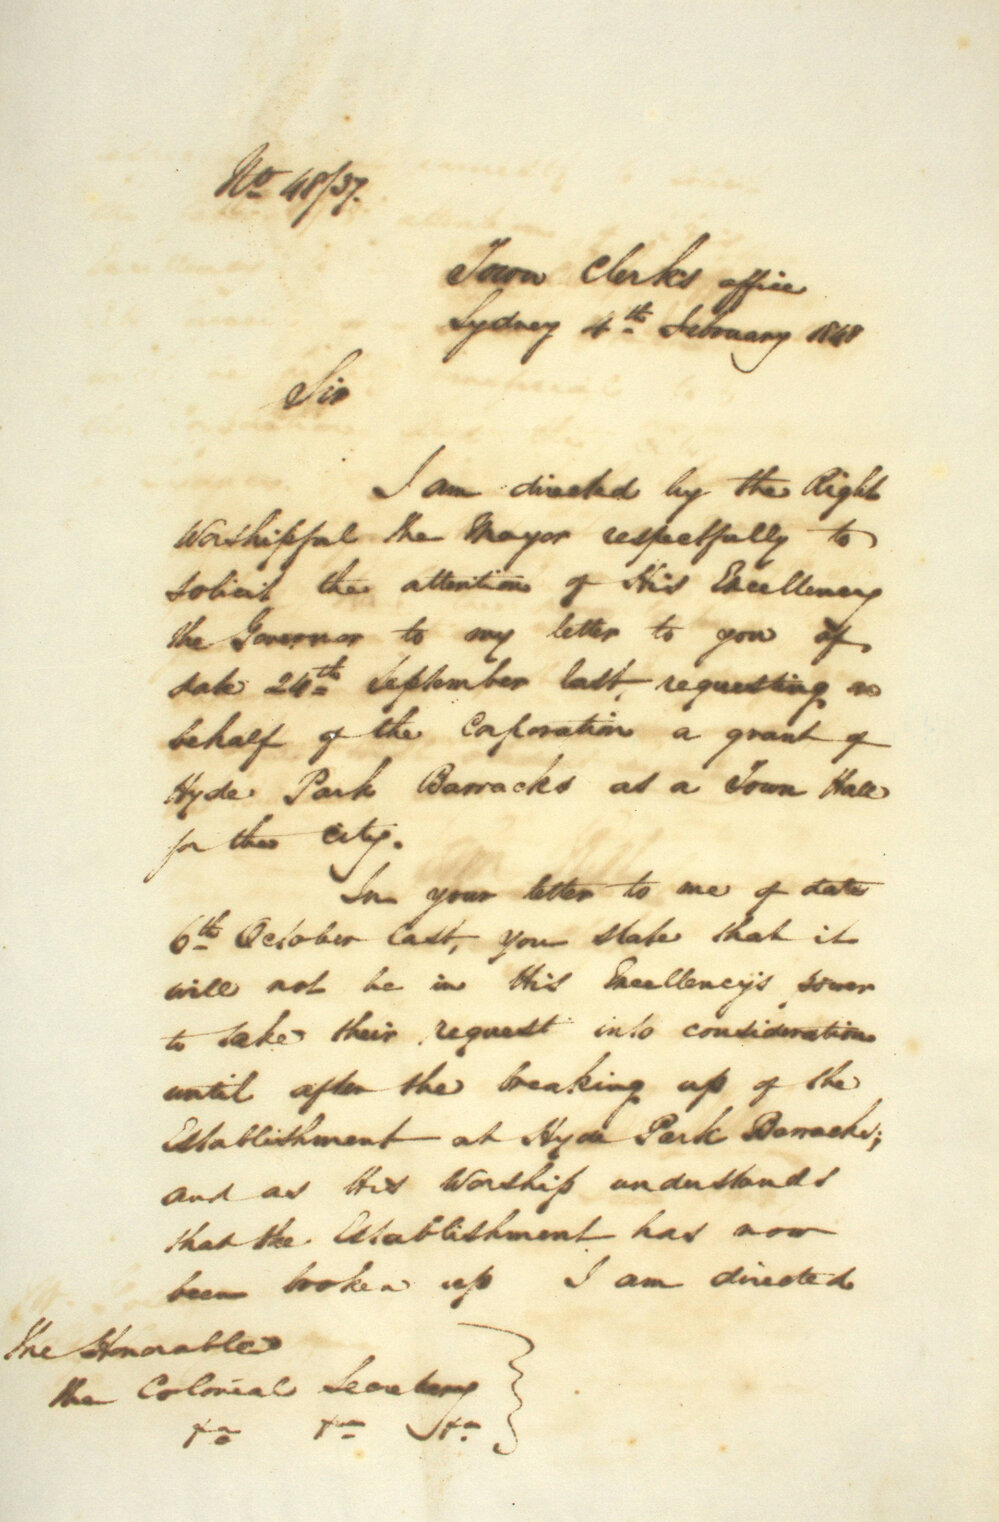 No 48/37.
Town Clerks office
Sydney 4th February 1848
Sir
I am directed by the Right
Worshipful the Mayor respectfully to
solicit the attention of His Excellency
the Governor to my letter to you of
date 24th September last, requesting on
behalf of the Corporation a grant of
Hyde Park Barracks as a Town Hall
for the City.
In your letter to me of date
6th October last, you state that it
will not be in His Excellency's power
to take their request into consideration
until after the breaking up of the
Establishment at Hyde Park Barracks;
and as His Worship understands
that the Establishment has now
been broken up I am directed
The Honorable
the Colonial Secretary
&c &c &c